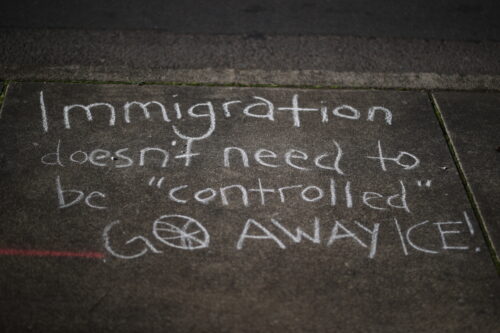 Immigration
doesn't need to
be "controlled"
GO AWAY ICE!